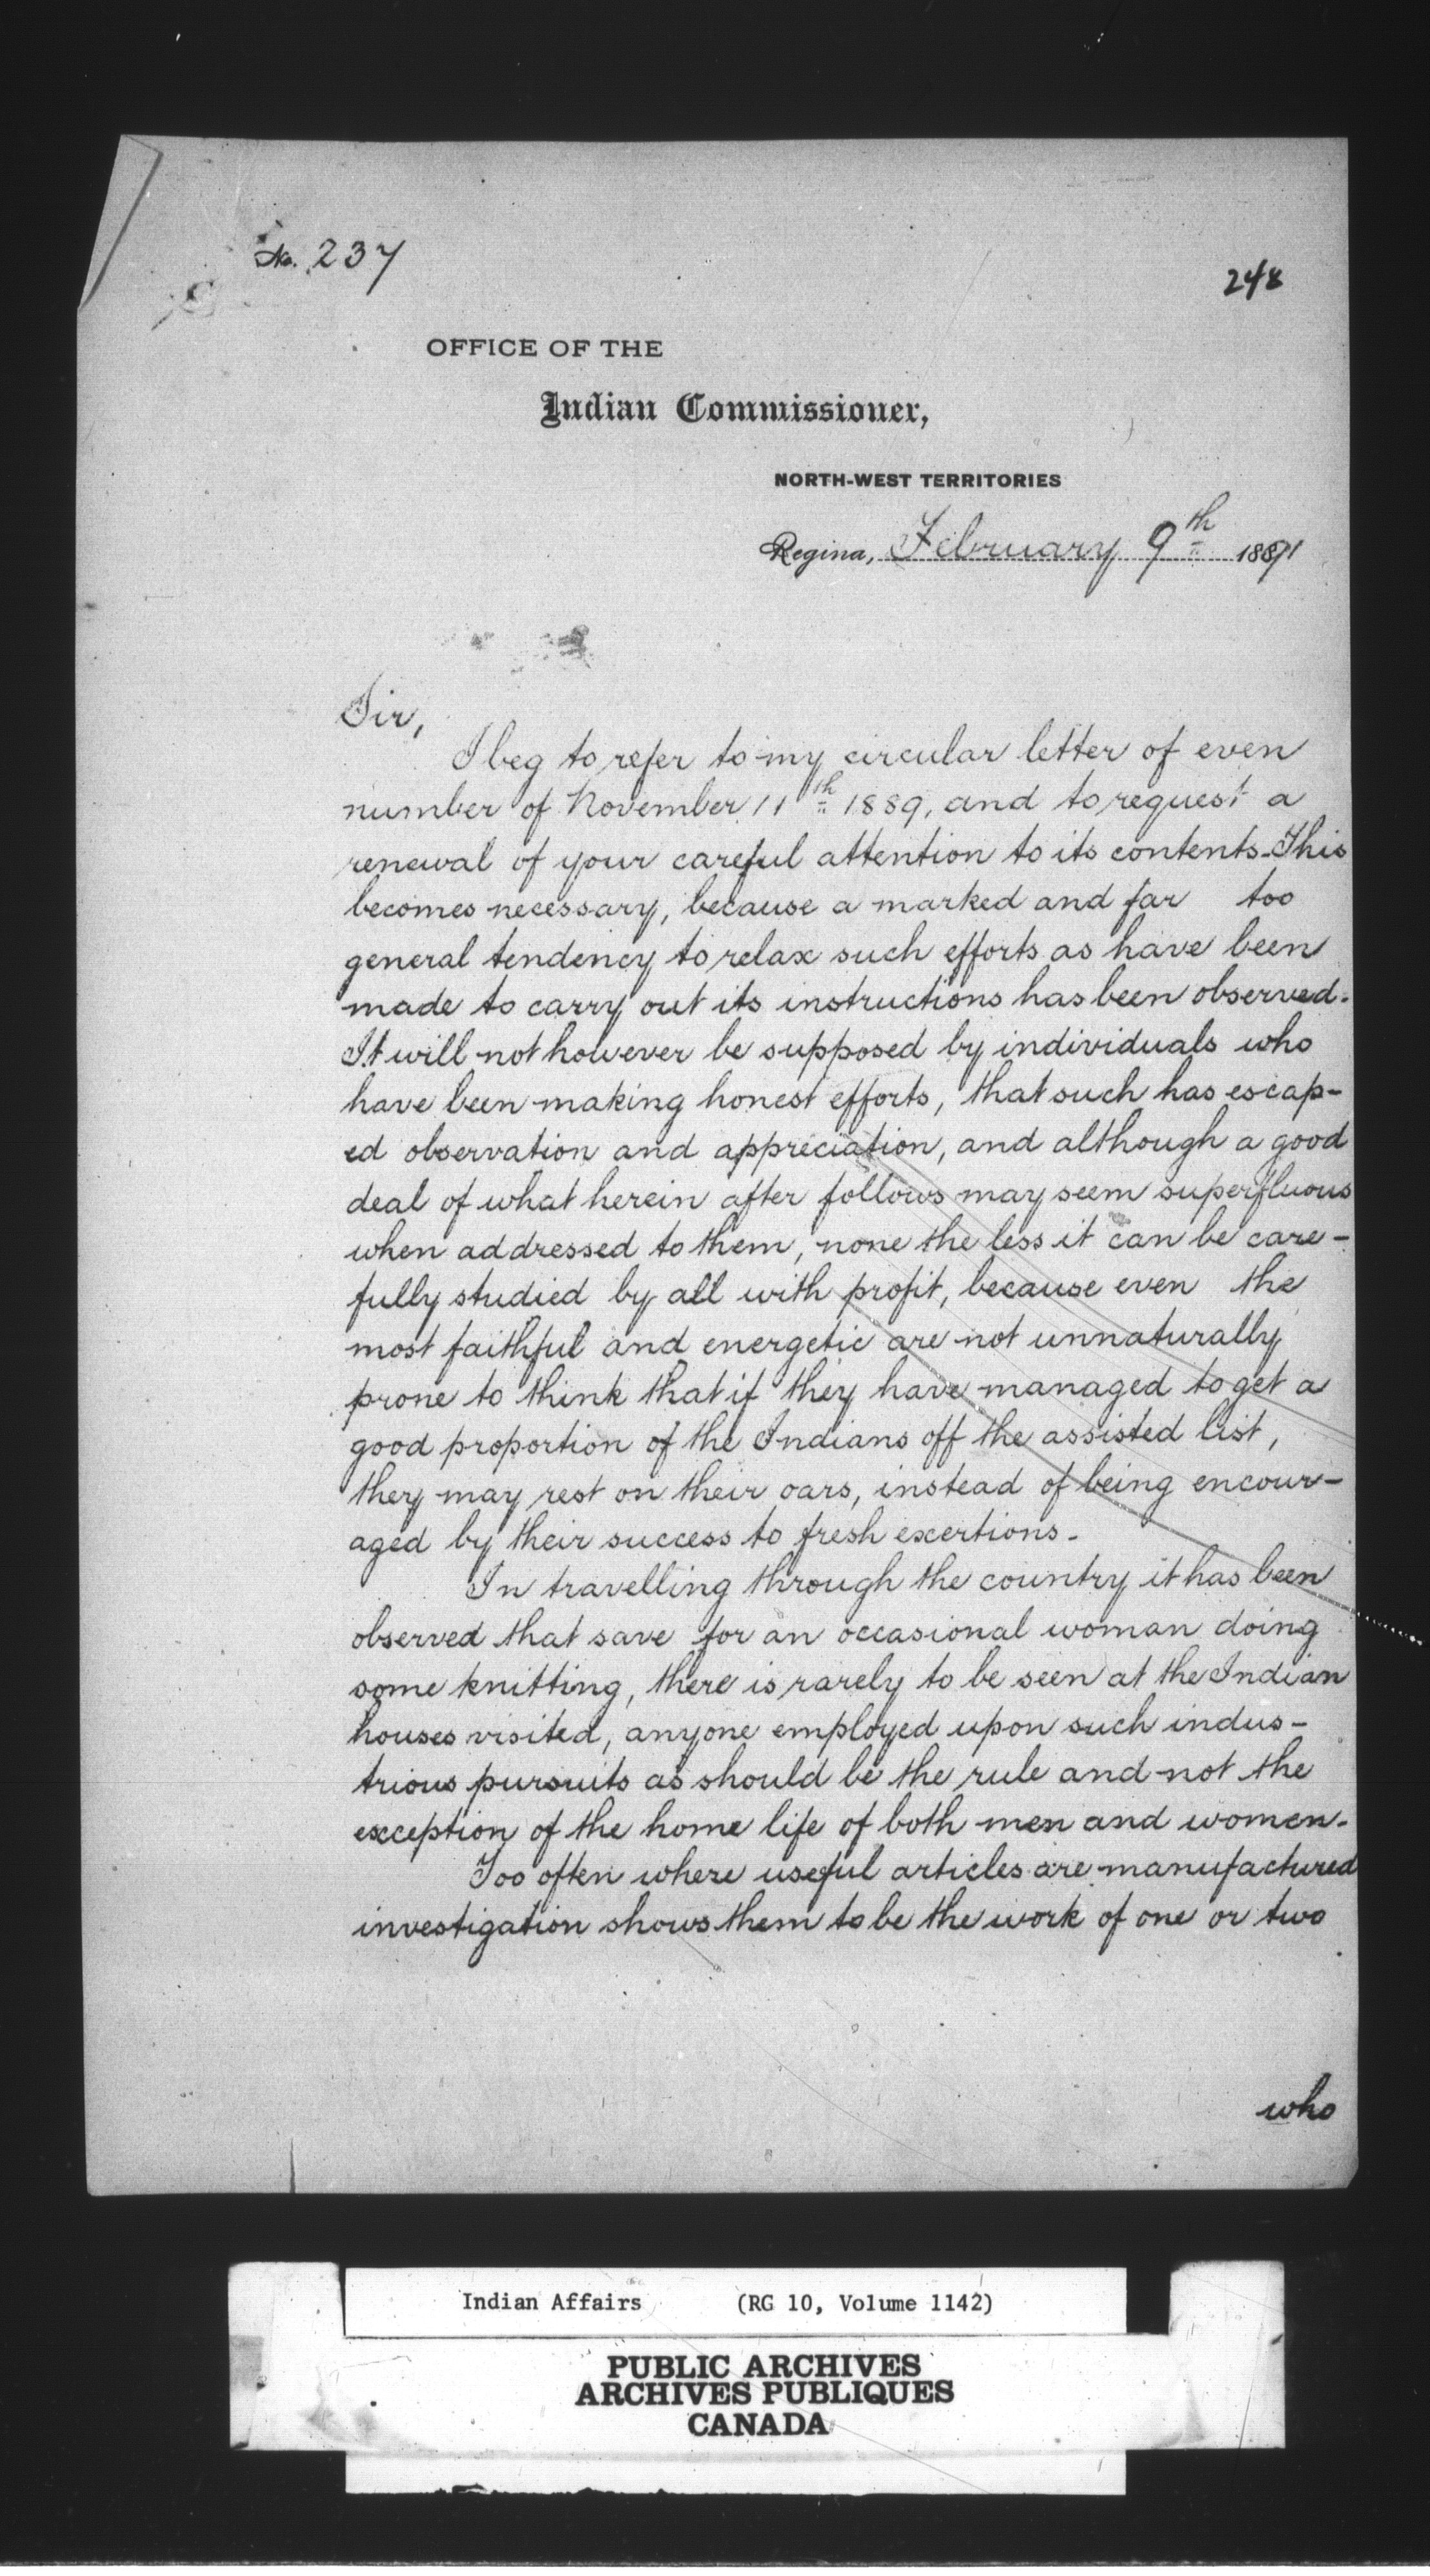 No. 237
248
OFFICE OF THE
Indian Commissioner,
NORTH-WEST TERRITORIES
Regina, February 9th 1891
Sir,
I beg to refer to my circular letter of even
number of November 11th 1889, and to request a
renewal of your careful attention to its contents. This
becomes necessary, because a marked and far too
general tendency to relax such efforts as have been
made to carry out its instructions has been observed.
It will not however be supposed by individuals who
have been making honest efforts, that such has escap-
ed observation and appreciation, and although a good
deal of what herein after follows may seem superfluous
when addressed to them, none the less it can be care-
fully studied by all with profit, because even the
most faithful and energetic are not unnaturally
prone to think that if they have managed to get a
good proportion of the Indians off the assisted list,
they may rest on their oars, instead of being encour-
aged by their success to fresh exertions.
In travelling through the country it has been
observed that save for an occasional woman doing
some knitting, there is rarely to be seen at the Indian
houses visited, anyone employed upon such indus-
trious pursuits as should be the rule and not the
exception of the home life of both men and women.
Too often where useful articles are manufactured
investigation shows them to be the work of one or two
who
Indian Affairs (RG 10, Volume 1142)
PUBLIC ARCHIVES
ARCHIVES PUBLIQUES
CANADA